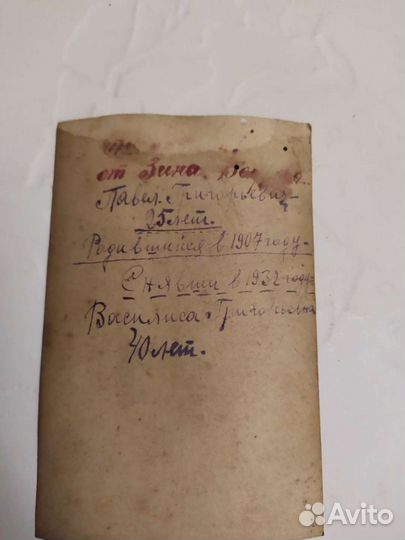 от Зина
Павел. Григорьевич
25 лет.
Родившийся в 1907 году.
Снявши в 1932 году
Василиса. Григорьевна
40 лет.
Avito